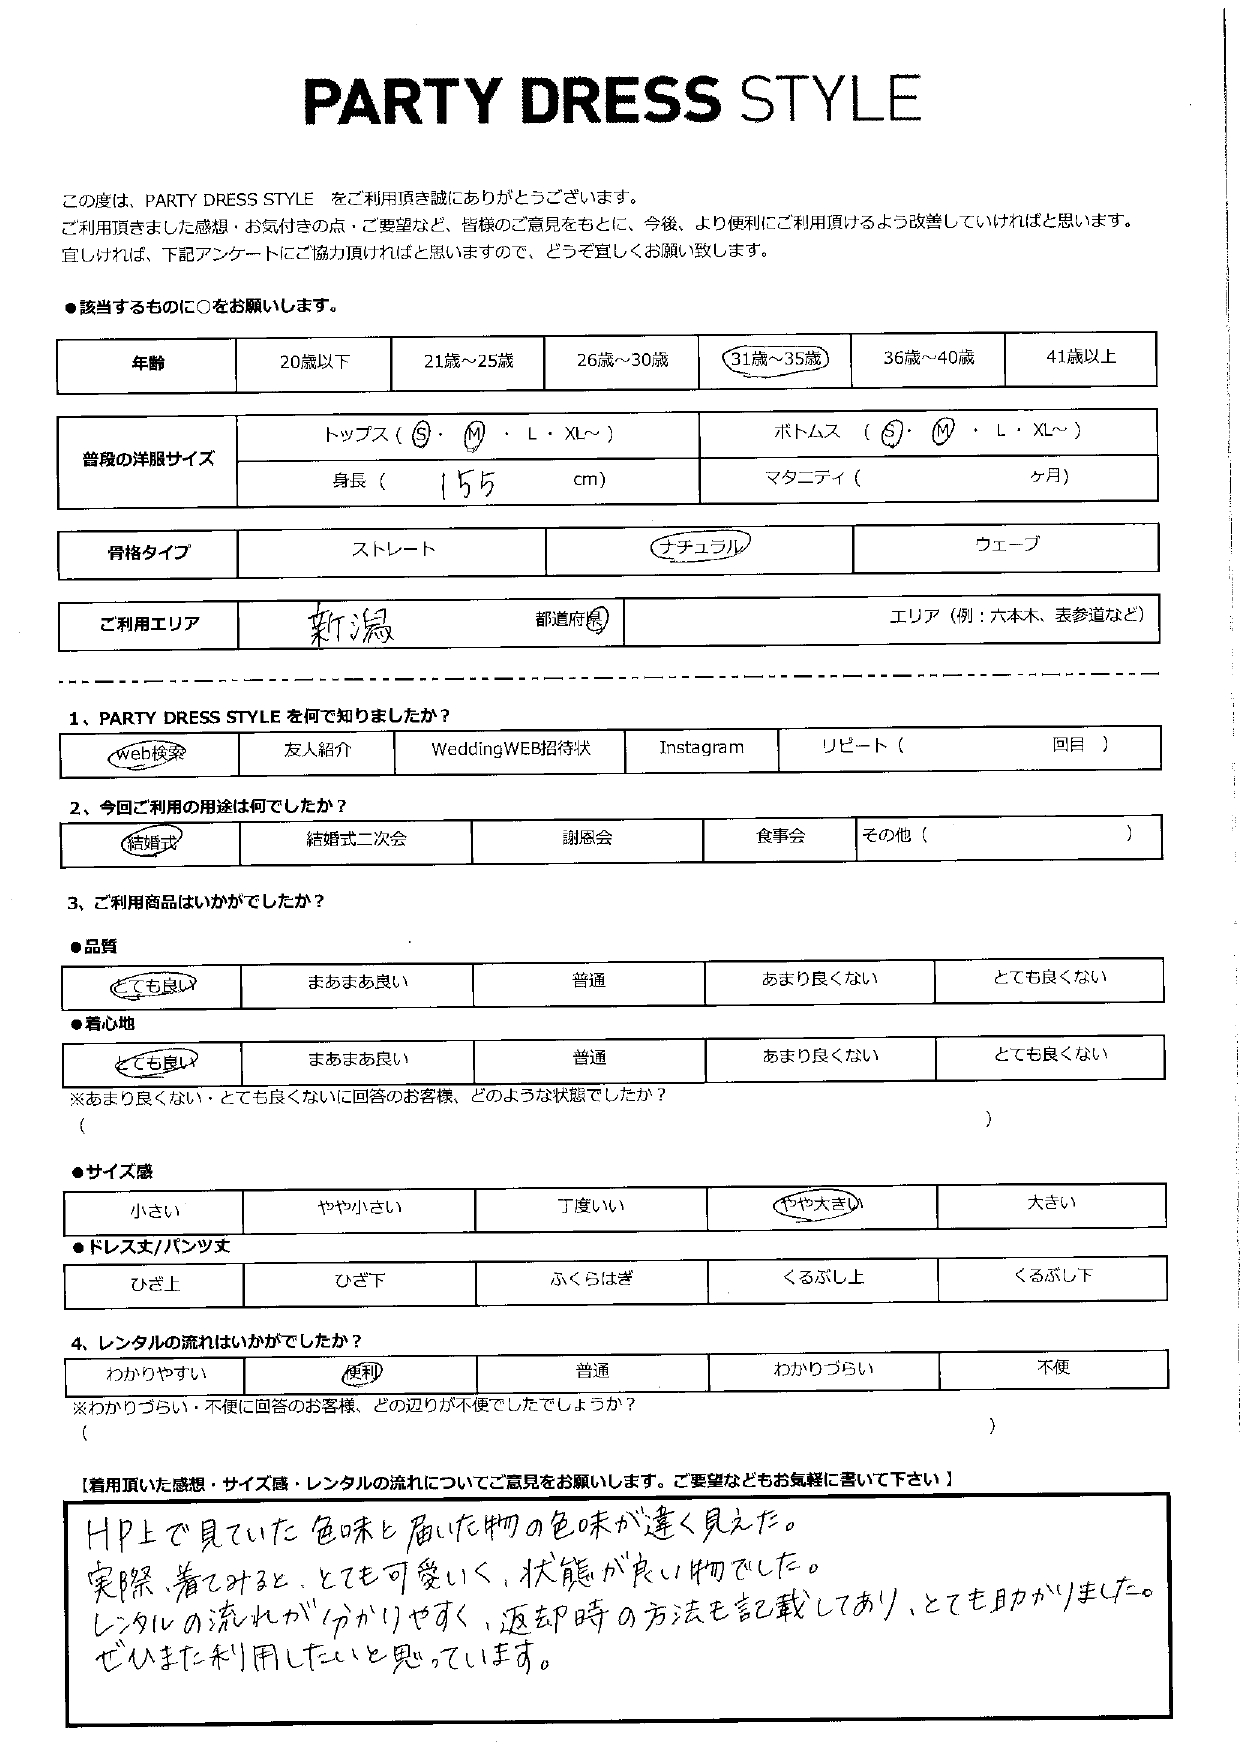 PARTY DRESS STYLE
この度は、PARTY DRESS STYLE をご利用頂き誠にありがとうございます。
ご利用頂きました感想・お気付きの点・ご要望など、皆様のご意見をもとに、今後、より便利にご利用頂けるよう改善していければと思います。
宜しければ、下記アンケートにご協力頂ければと思いますので、どうぞ宜しくお願い致します。
●該当するものに○をお願いします。
年齢 20歳以下 21歳～25歳 26歳～30歳 31歳～35歳 36歳～40歳 41歳以上
普段の洋服サイズ
トップス ( S ・ M ・ L ・ XL～ ) ボトムス ( S ・ M ・ L ・ XL～ )
身長 ( 155 cm) マタニティ ( ヶ月)
骨格タイプ ストレート ナチュラル ウェーブ
ご利用エリア 新潟 都道府県 エリア（例：六本木、表参道など）
1、PARTY DRESS STYLE を何で知りましたか？
web検索 友人紹介 WeddingWEB招待状 Instagram リピート ( 回目 )
2、今回ご利用の用途は何でしたか？
結婚式 結婚式二次会 謝恩会 食事会 その他 ( )
3、ご利用商品はいかがでしたか？
●品質
とても良い まあまあ良い 普通 あまり良くない とても良くない
●着心地
とても良い まあまあ良い 普通 あまり良くない とても良くない
※あまり良くない・とても良くないに回答のお客様、どのような状態でしたか？
( )
●サイズ感
小さい やや小さい 丁度いい やや大きい 大きい
●ドレス丈/パンツ丈
ひざ上 ひざ下 ふくらはぎ くるぶし上 くるぶし下
4、レンタルの流れはいかがでしたか？
わかりやすい 便利 普通 わかりづらい 不便
※わかりづらい・不便に回答のお客様、どの辺りが不便でしたでしょうか？
( )
【着用頂いた感想・サイズ感・レンタルの流れについてご意見をお願いします。ご要望などもお気軽に書いて下さい】
HP上で見ていた色味と届いた物の色味が違く見えた。
実際、着てみると、とても可愛いく、状態が良い物でした。
レンタルの流れが分かりやすく、返却時の方法も記載してあり、とても助かりました。
ぜひまた利用したいと思っています。